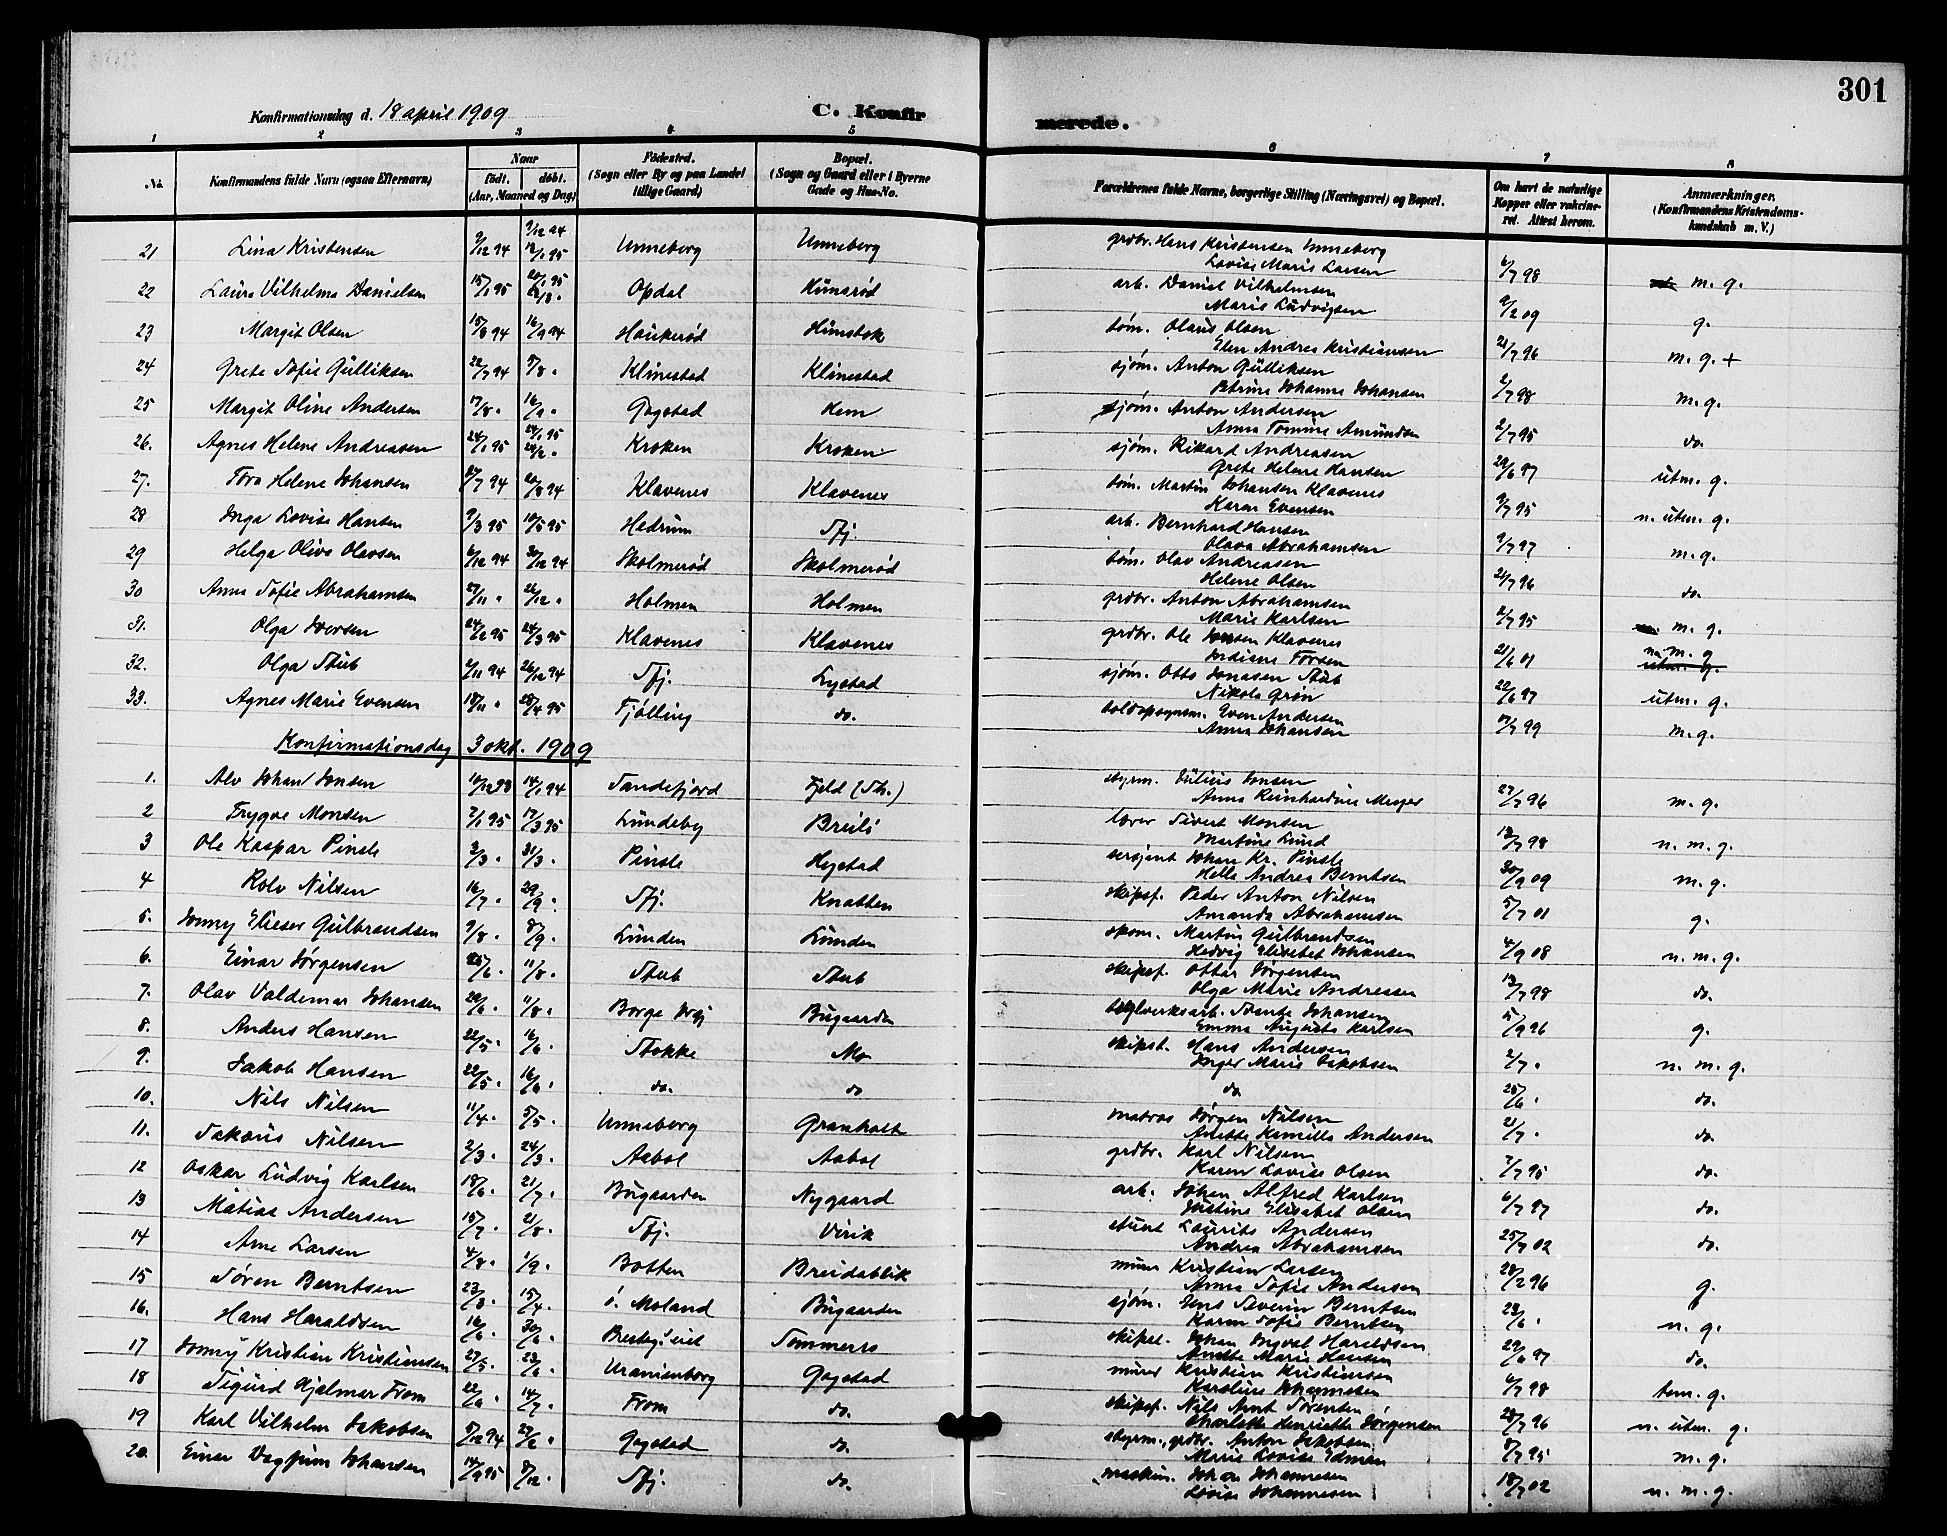 301
Konfirmationsdag d. 18 april 1909
C. Konfirmerede.
1 2 3 4 5 6 7 8
No. Konfirmandens fulde Navn (ogsaa Efternavn) Naar født. døbt. (Aar, Maaned og Dag) Fødested. (Sogn eller By og paa Landet tillige Gaard) Bopæl. (Sogn og Gaard eller i Byerne Gade og Hus-No. Forældrenes fulde Navne, borgerlige Stilling (Næringsvei) og Bopæl. Om havt de naturlige Kopper eller vakcineret. Attest herom. Anmærkninger. (Konfirmandens Kristendomskundskab m. V.)
21 Lina Kristensen 9/12 94 9/12 94 12/1 95 Unneberg Unneberg grdbr. Hans Kristensen Unneberg
Lovise Marie Larsen 6/7 98 m. g.
22 Laura Vilhelma Danielsen 15/1 95 20/1 95 Opdal Kamarød arb. Daniel Vilhelmsen
Marie Ludvigsen 9/2 09 g.
23 Margit Olsen 15/8 94 16/9 94 Haukerød Himstok tøm. Olaus Olsen
Elen Andrea Kristiansen 21/7 96 m. g. +
24 Grete Sofie Gulliksen 22/7 94 5/8 " Klinestad Klinestad sjøm. Anton Gulliksen
Petrine Johanne Johansen 2/7 98 m. g.
25 Margit Oline Andersen 17/8 " 16/9 " Gogstad Kem sjøm. Anton Andersen
Anna Tomine Amundsen 2/7 95 do.
26. Agnes Helene Andreasen 24/1 95 24/1 95 24/2 " Kroken Kroken sjøm. Rikard Andreasen
Grete Helene Hansen 29/6 97 utm. g.
27. Tora Helene Johansen 27/7 94 20/8 94 Klavenes Klavenes tøm. Martin Johansen Klavenes
Karen Evensen 9/7 95 n. utm. g.
28 Inga Lovise Hansen 9/3 95 10/5 95 Hedrum Sfj. arb. Bernhard Hansen
Olava Abrahamsen 9/7 97 m. g.
29 Helga Olive Olavsen 6/12 94 30/12 94 Skolmerød Skolmerød tøm. Olav Andreasen
Helene Olsen 24/7 96 do.
30 Anna Sofie Abrahamsen 27/11 " 26/12 " Holmen Holmen grdbr. Anton Abrahamsen
Marie Karlsen 2/7 95 m. g.
31. Olga Iversen 24/2 95 24/3 95 Klavenes Klavenes grdbr. Ole Klavenes
21/6 01 m. g
32. Olga Stub 2/11 94 26/12 94 Sfj. Lystad sjøm. Otto Jonassen Stub
Nikola Grøn 22/6 97 utm. g.
33. Agnes Marie Evensen 18/11 " 28/4 95 Fjølling do. toldopsynsm. Even Andersen
Anna Johansen 17/7 99 m. g.
Konfirmationsdag 3 okt. 1909
1. Alv Johan Jonsen 10/12 93 14/1 94 Sandefjord Fjeld (Sh.) styrm. Julius Jonsen
Anna Reinhardine Meyer 27/7 96 m. g.
2 Trygve Monsen 7/1 95 17/3 95 Lundeby Breili lærer Sivert Monsen
Martine Lund 13/7 98 n. m. g.
3 Ole Kaspar Pinsle 3/3 " 31/3 " Pinsle Hystad sersjant Johan Kr. Pinsle
Helle Andrea Berntsen 30/9 09 m. g.
4 Rolv Nilsen 16/7 " 29/9 " Sfj. Knatten skipsf. Peder Anton Nilsen
Amanda Abrahamsen 5/7 01 g.
5. Jonny Elieser Gulbrandsen 9/8 " 8/9 " Lunden Lunden skom. Martin Gulbrandsen
Hedvig Elisebet Johansen 4/9 08 n. m. g.
6. Einar Jørgensen 25/6 " 11/8 " Stub Stub skipsf. Ottar Jørgensen
Olga Marie Andreasen 13/7 98 do.
7. Olav Valdemar Johansen 20/6 " 11/8 " Borge Bugaarden teglverksarb. Svante Johansen
Emma Augusta Karlsen 5/9 96 g.
8. Anders Hansen 22/5 " 16/6 " Stokke Mo skipst. Hans Andersen
Inger Marie Jakobsen 2/7 " n. m. g.
9. Jakob Hansen 22/5 " 16/6 " do. do do 25/6 " do.
10. Nils Nilsen 11/4 " 5/5 " Unneberg Granholt matros Jørgen Nilsen
Anette Kamilla Andersen 21/7 " do.
11. Sakæus Nilsen 2/3 " 24/3 " Aabol Aabol grdbr. Karl Nilsen
Karen Lovise Olsen 7/7 95 do.
12 Oskar Ludvig Karlsen 18/6 " 21/7 " Bugaarden Nygaard arb. Johan Alfred Karlsen
Justine Elisabet Olsen 6/7 97 do.
13 Matias Andersen 15/7 " 21/8 " Sfj. Virik stuert Laurits Andersen
Andrea Abrahamsen 25/7 02 do.
14 Arne Larsen 4/8 " 1/9 " Botten Breidablik murer Kristian Larsen
Anna Sofie Andersen 28/2 96 g.
15 Søren Berntsen 23/3 " 15/4 " ø. Moland Bugaarden sjøm. Jens Severin Berntsen
Karen Sofie Berntsen 23/6 " n. g.
16. Hans Haraldsen 16/6 " 30/6 " Prestegj. eiet Sommerro skipst. Johan Ingval Haraldsen
Anette Marie Hansen 29/6 97 do.
17 Jonny Kristian Kristiansen 27/5 " 23/6 " Uranienborg Gogstad murer Kristian Kristiansen
Karoline Johannesen 6/7 98 tem. g.
18 Sigurd Hjalmar From 22/6 " 14/7 " From do. skipsf. Nils Arnt Sørensen
Charlotte Henriette Jørgensen 28/7 96 n. utm. g.
19 Karl Vilhelm Jakobsen 5/12 94 27/2 " Gogstad do. styrm., grdbr. Anton Jakobsen
Marie Lovise Edman 8/7 95 m. g.
20. Einar Dagfinn Johansen 14/9 95 8/12 " Sfj. do. maskin. Johan Johannesen
Lovise Johannesen 18/7 02 n. m. g.